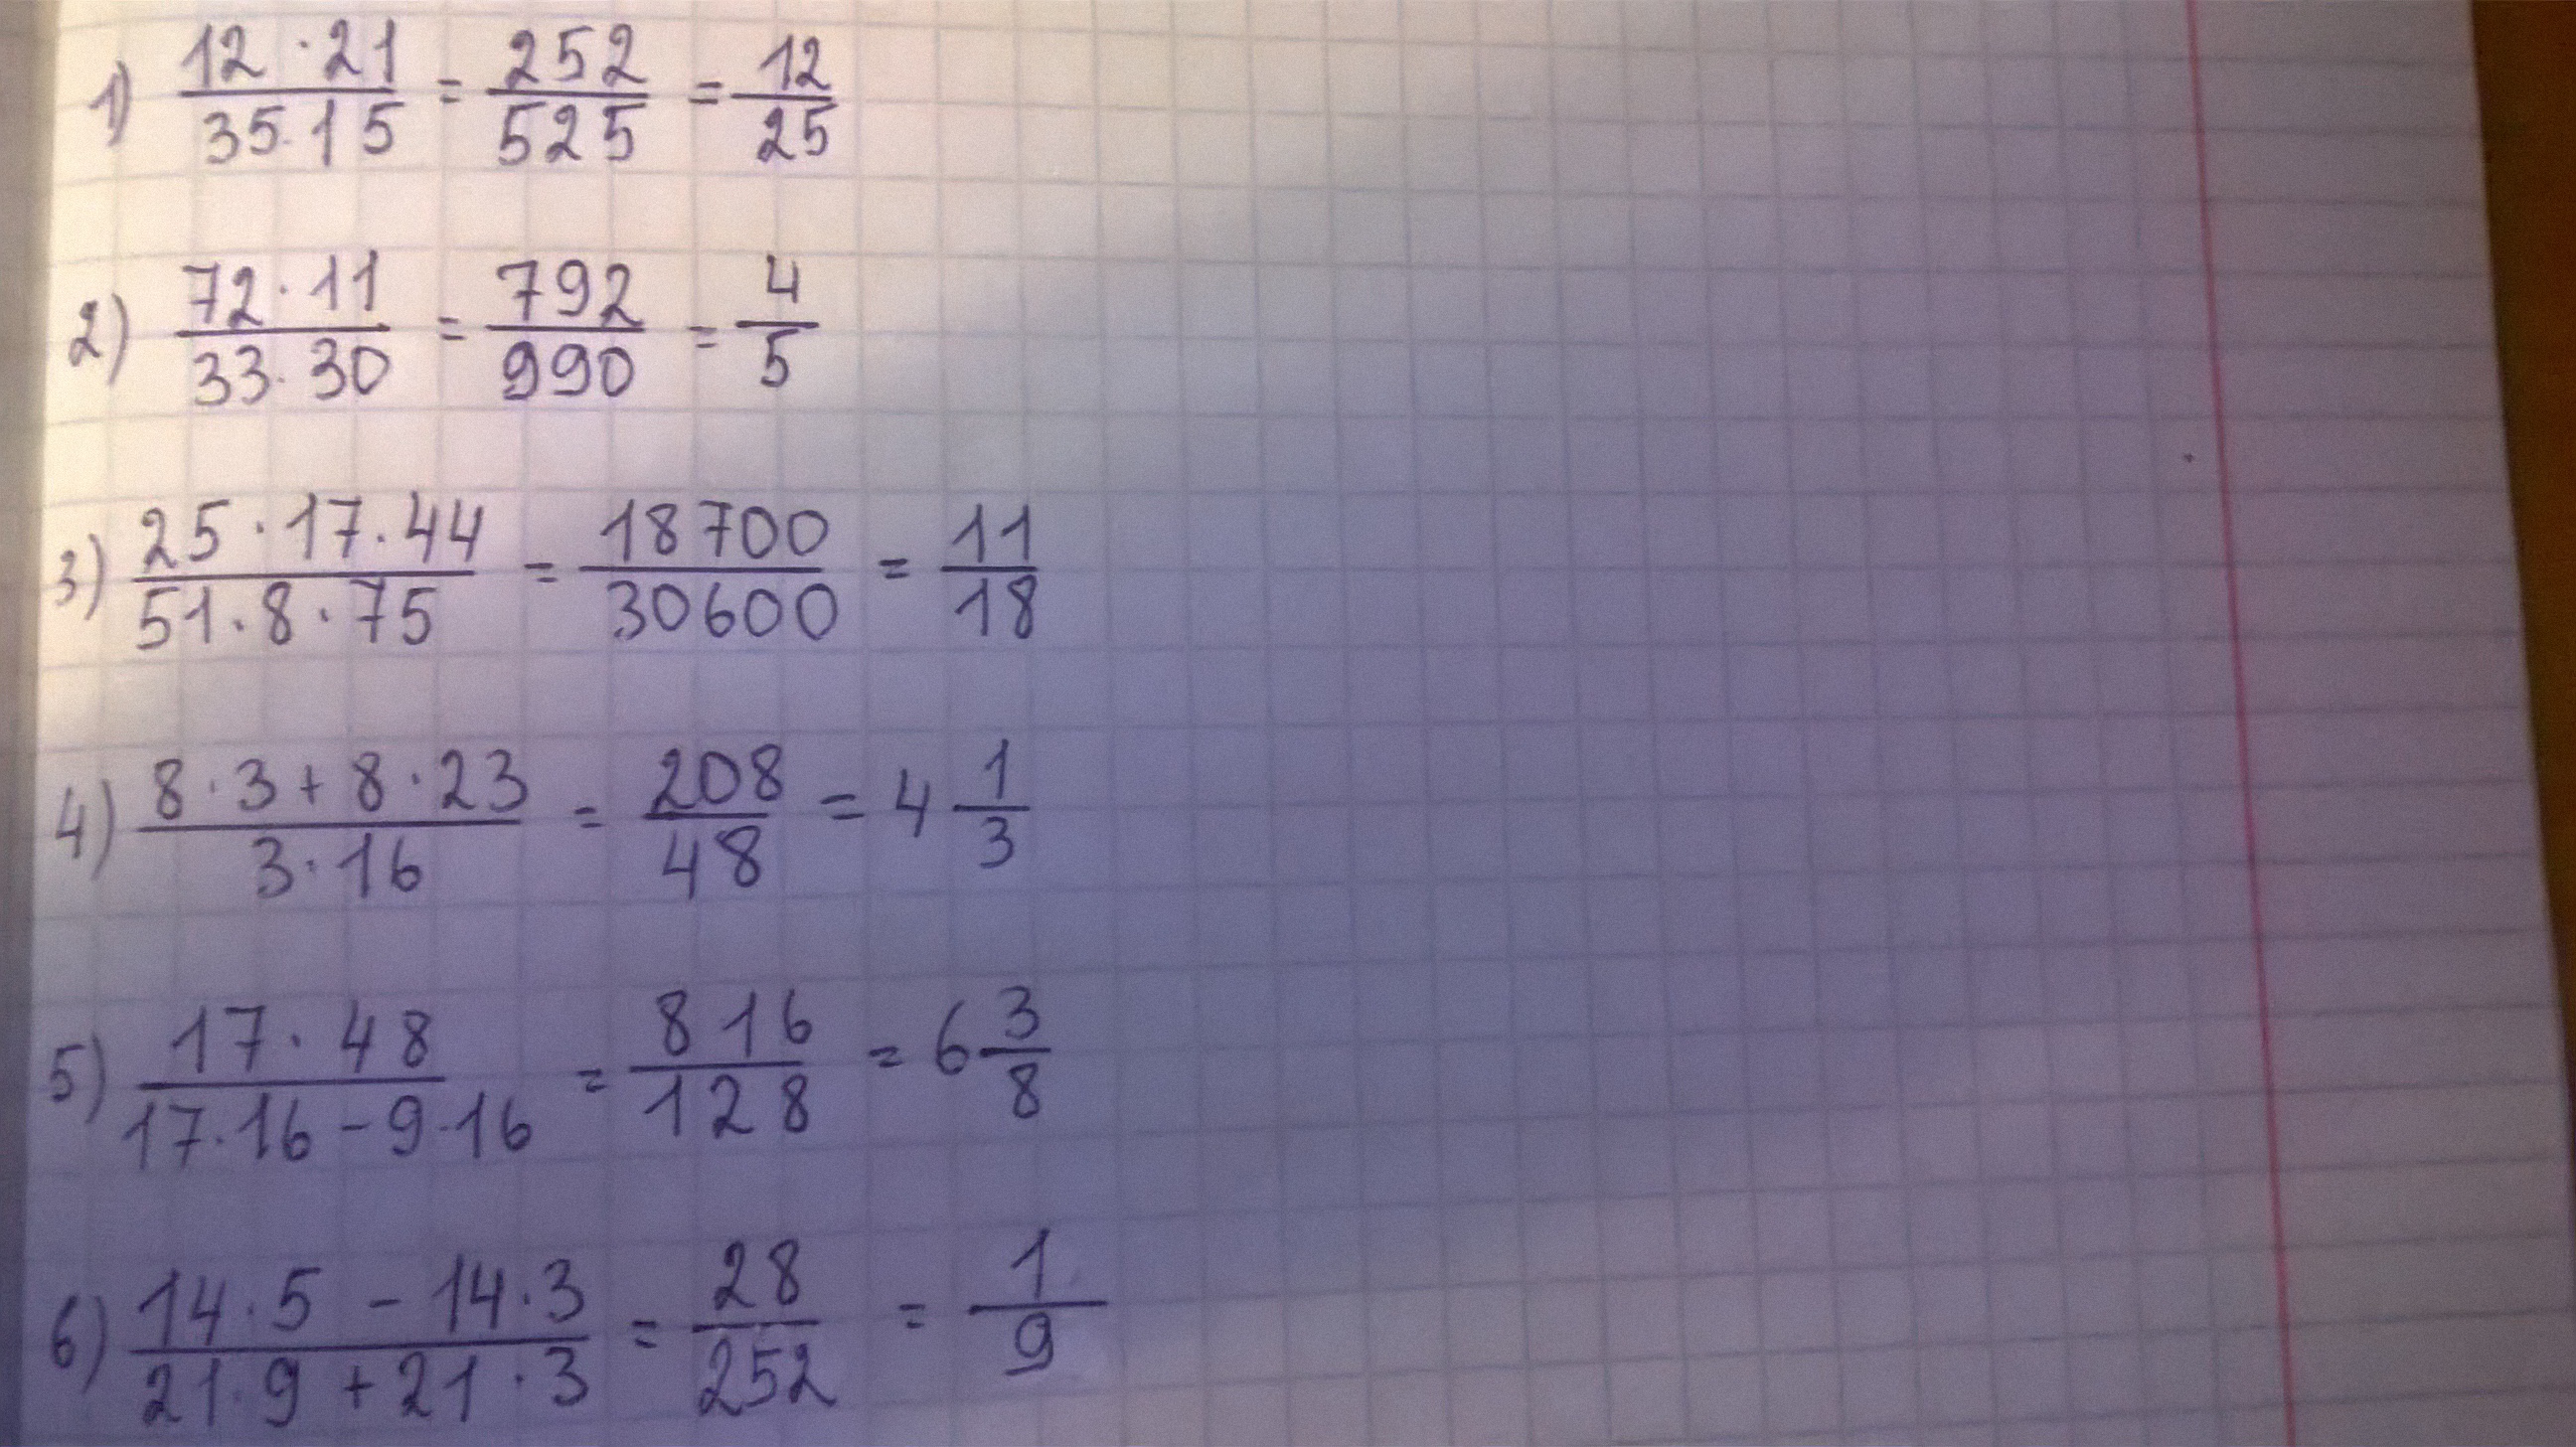 1) 12·21/35·15 = 252/525 = 12/25
2) 72·11/33·30 = 792/990 = 4/5
3) 25·17·44/51·8·75 = 18700/30600 = 11/18
4) 8·3+8·23/3·16 = 208/48 = 4 1/3
5) 17·48/17·16-9·16 = 816/128 = 6 3/8
6) 14·5-14·3/21·9+21·3 = 28/252 = 1/9